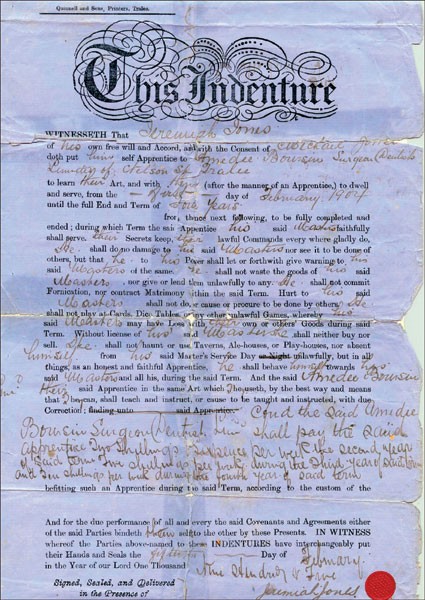 Quennell and Sons, Printers, Tralee.
This Indenture
WITNESSETH That Jeremiah Jones
of his own free will and Accord, and with the Consent of Michael Jones
doth put himself Apprentice to Amedee Bourein Surgeon Dentist
of Nelson St Tralee
to learn their Art, and with them (after the manner of an Apprentice,) to dwell
and serve, from the First day of February 1904
until the full End and Term of Four Years
from thence next following, to be fully completed and
ended; during which Term the said Apprentice his said Masters faithfully
shall serve, their Secrets keep, their lawful Commands every where gladly do,
He shall do no damage to his said Masters nor see it to be done of
others, but that he to his Power shall let or forthwith give warning to his
said Masters of the same. He shall not waste the goods of his said
Masters nor give or lend them unlawfully to any. He shall not commit
Fornication, nor contract Matrimony within the said Term. Hurt to his said
Masters shall not do, or cause or procure to be done by others. He
shall not play at Cards, Dice, Tables, or any other unlawful Games, whereby his
said Masters may have Loss with their own or others' Goods during said
Term. Without license of his said Masters he shall neither buy nor
sell. He shall not haunt or use Taverns, Ale-houses, or Play-houses, nor absent
himself from his said Master's Service Day or Night unlawfully, but in all
things, as an honest and faithful Apprentice, he shall behave himself towards his
said Masters and all his, during the said Term. And the said Amedee Bourein
their said Apprentice in the same Art which They useth, by the best way and means
that They can, shall teach and instruct, or cause to be taught and instructed, with due
Correction; finding unto said Apprentice. And the said Amedee
Bourein Surgeon Dentist shall pay the said
apprentice Two Shillings & sixpence per week the second year
of said term Five shillings per week during the third year of said term
and Ten shillings per week during the fourth year of said term
befitting such an Apprentice during the said Term, according to the custom of the
And for the due performance of all and every the said Covenants and Agreements either
of the said Parties bindeth them self to the other by these Presents. IN WITNESS
whereof the Parties above-named to these INDENTURES have interchangeably put
their Hands and Seals the Day of February
in the Year of our Lord One Thousand Nine Hundred & Five
Signed, Sealed, and Delivered Jeremiah Jones
in the Presence of